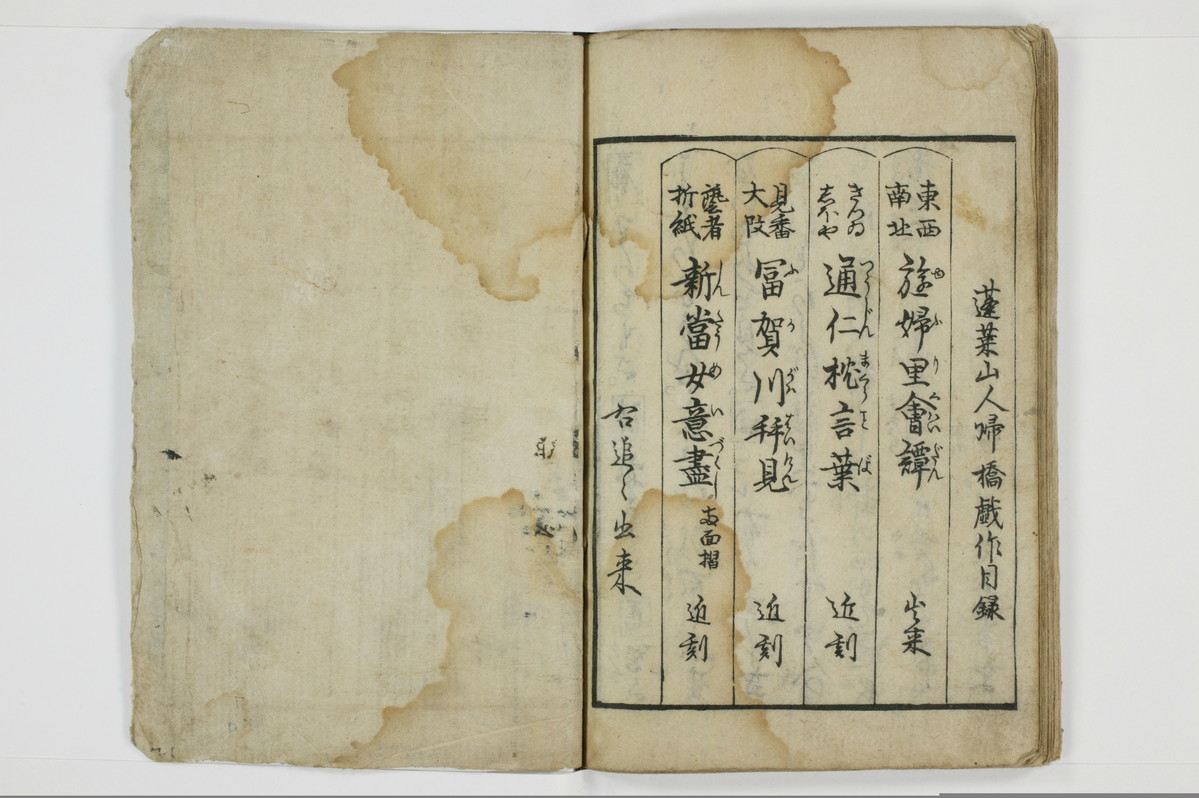 蓬莱山人帰橋戯作目録
東西
南北
遊婦里會譚 出来
きつね
通仁枕言葉 近刻
見番
大改
冨賀川拝見 近刻
藝者
折紙
新當女意盡 両面摺 近刻
右追々出来